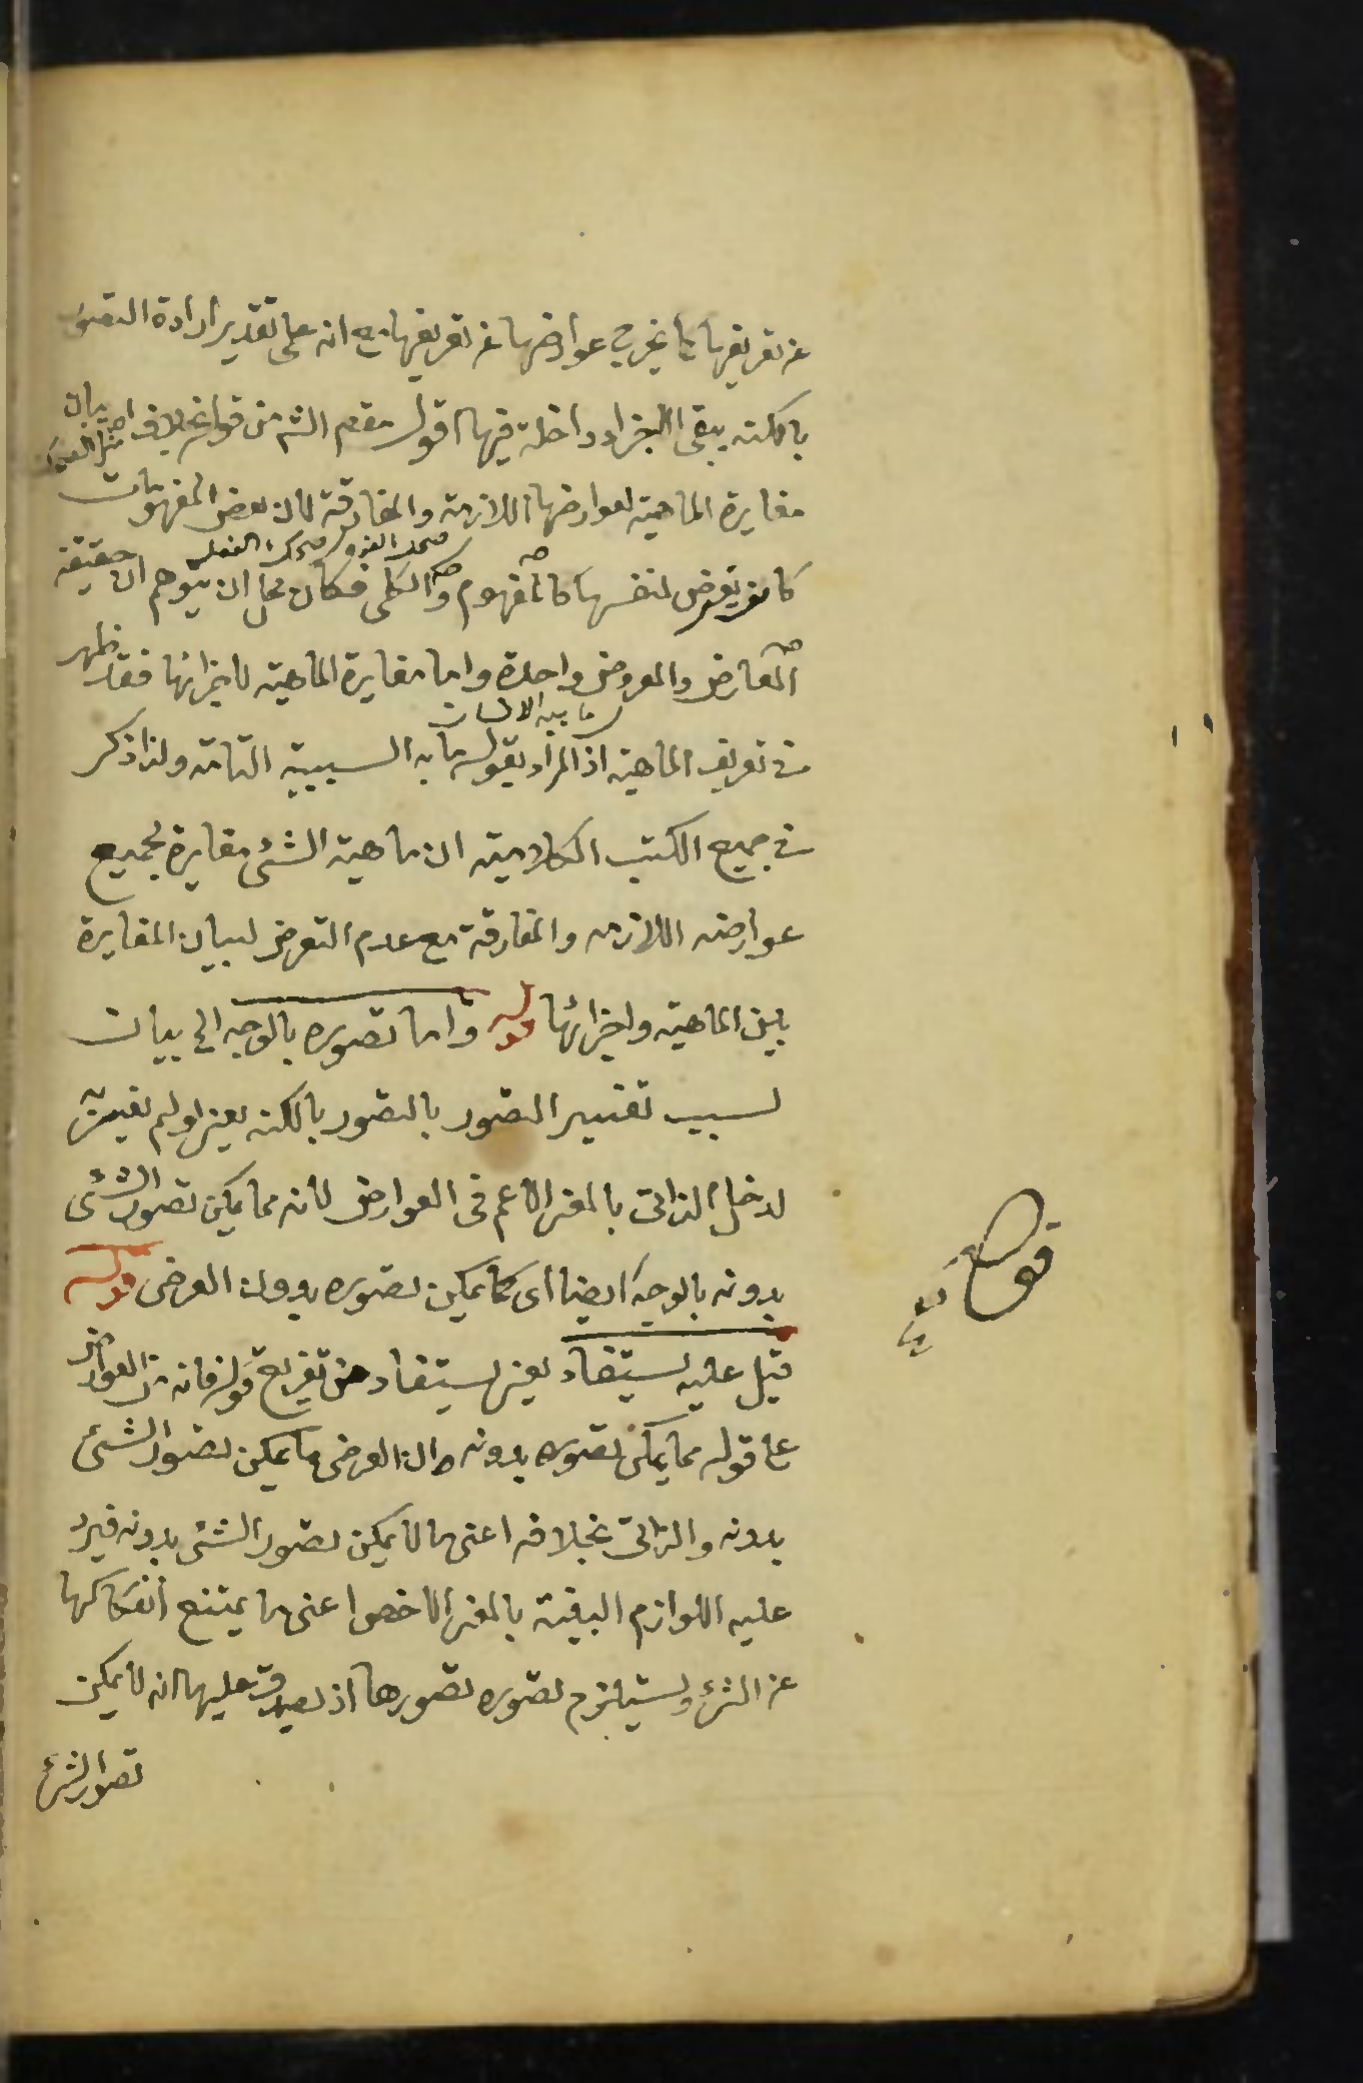 عن تعريفها كما يخرج عوارضها عن تعريفها مع انه على تقدير ارادة التصور
بالكنه يبقى الاجزاء داخلة فيها اقول مقصود الش من قوله بخلاف مثل الضاحك بيان
مغايرة الماهية لعوارضها اللازمة والمفارقة لان بعض المفهومات
كانه يعرض لنفسها كالمفهوم والكلى فكان محل ان يتوهم ان حقيقة
العارض والمعروض واحدة واما مغايرة الماهية لاجزائها فقد ظهر
ما به الانسان
من تعريف الماهية اذ المراد بقوله ما به السببية التامة ولذا ذكر
فى جميع الكتب الكلامية ان ماهية الشئ مغايرة لجميع
عوارضه اللازمة والمفارقة مع عدم التعرض لبيان المغايرة
بين الماهية واجزائها قوله واما تصوره بالوجه الى بيان
لسبب تفسير التصور بالتصور بالكنه يعنى لو لم يفسر به
لدخل الذاتى بالمعنى الاعم فى العوارض لانه مما يمكن تصور الشئ
بدونه بالوجه ايضا اى كما يمكن تصوره بدون العرضى قوله
قيل عليه يستفاد يعنى يستفاد من تفريع قوله فانه من العوارض
على قوله مما يمكن تصوره بدونه ان العرضى ما يمكن تصور الشئ
بدونه والذاتى بخلافه اعنى ما لا يمكن تصور الشئ بدونه فيرد
عليه اللوازم البينة بالمعنى الاخص اعنى ما يمتنع انفكاكها
عن الشئ ويستلزم تصوره تصورها اذ يصدق عليها انه لا يمكن
تصور الشئ